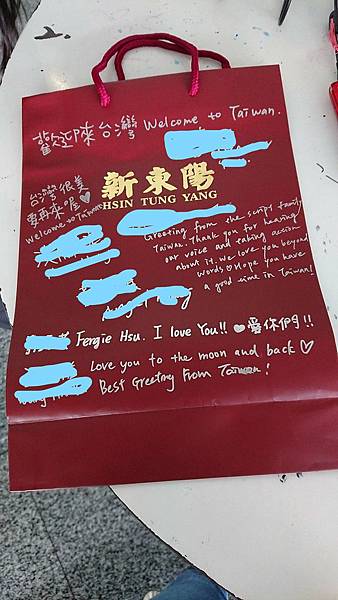 歡迎來台灣 Welcome to Taiwan.
台灣很美
要再來喔♡
Welcome to Taiwan
新東陽
HSIN TUNG YANG
Greeting from the script family
Taiwan. Thank you for hearing
our voice and taking action
about it. We love you beyond
words♡Hope you have
a good time in Taiwan!
Fergie Hsu. I love You!! ♥愛你們!!
Love you to the moon and back♡
Best Greeting From Taiwan!